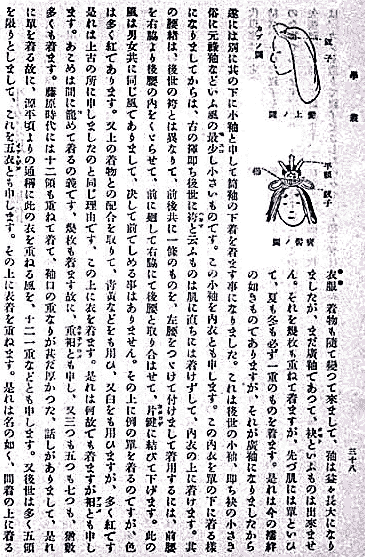 學叢
三十八
釵子
髻上ノ圖
平額
釵子
櫛
寶髻ノ圖
衣服 着物も隨て變つて來まして、袖は益々長大になり
ましたが、まだ廣袖であつて、袂といふものは出來ませ
ん。それを幾枚も重ねて着ますが、先づ肌には單といひ
て、夏も冬も必ず一重のものを着ます。是れは今の襦絆
の如きものでありますが、それが廣袖になりましたから
遂には別に其の下に小袖と申して筒袖の下着を着ます事になりました。これは後世の小袖、即ち袂の小さき
俗に元祿袖などいふ風の最少し小さいものです。この小袖を内衣とも申します。この内衣を單の下に着る樣
になりましてからは、古の褌即ち後世に袴と云ふものは肌に直ちには着けずして、内衣の上に着けます。其
の腰緒は、後世の袴とは異なりて、前後共に一條のものを、左腰をつゞけて付けまして着用するには、前腰
を右脇より後腰の内をくゞらせて、前に廻して右脇にて後腰と取り合はせて、片鍵に結びて下げます。此の
風は男女共に同じ風でありまして、決して前でしめる事はありません。その上に例の單を着るのですが、色
は多く紅であります。又上の着物との配合を取りて、青黄などをも用ひ、又白をも用ひますが、多く紅です
是れは上古の所に申しましたのと同じ理由です。この上に衣を着ます。是れは何故でも着ますが袙とも申し
ます。あこめは間に籠めて着るの義です、幾枚も着ます故に、重袙とも申し、又三つも五つも七つも、猶數
多くも着ます。藤原時代には十二領も重ねて着て、袖口の重なりが甚だ厚かつた、話しがありまして、是れ
に單を着る故に、源平頃よりの通稱に此の衣を重ねる風を、十二一重などとも申します。又後世は多く五領
を限りとしまして、これを五衣とも申します。その上に表着を重ねます。是れは名の如く、間着の上に着る